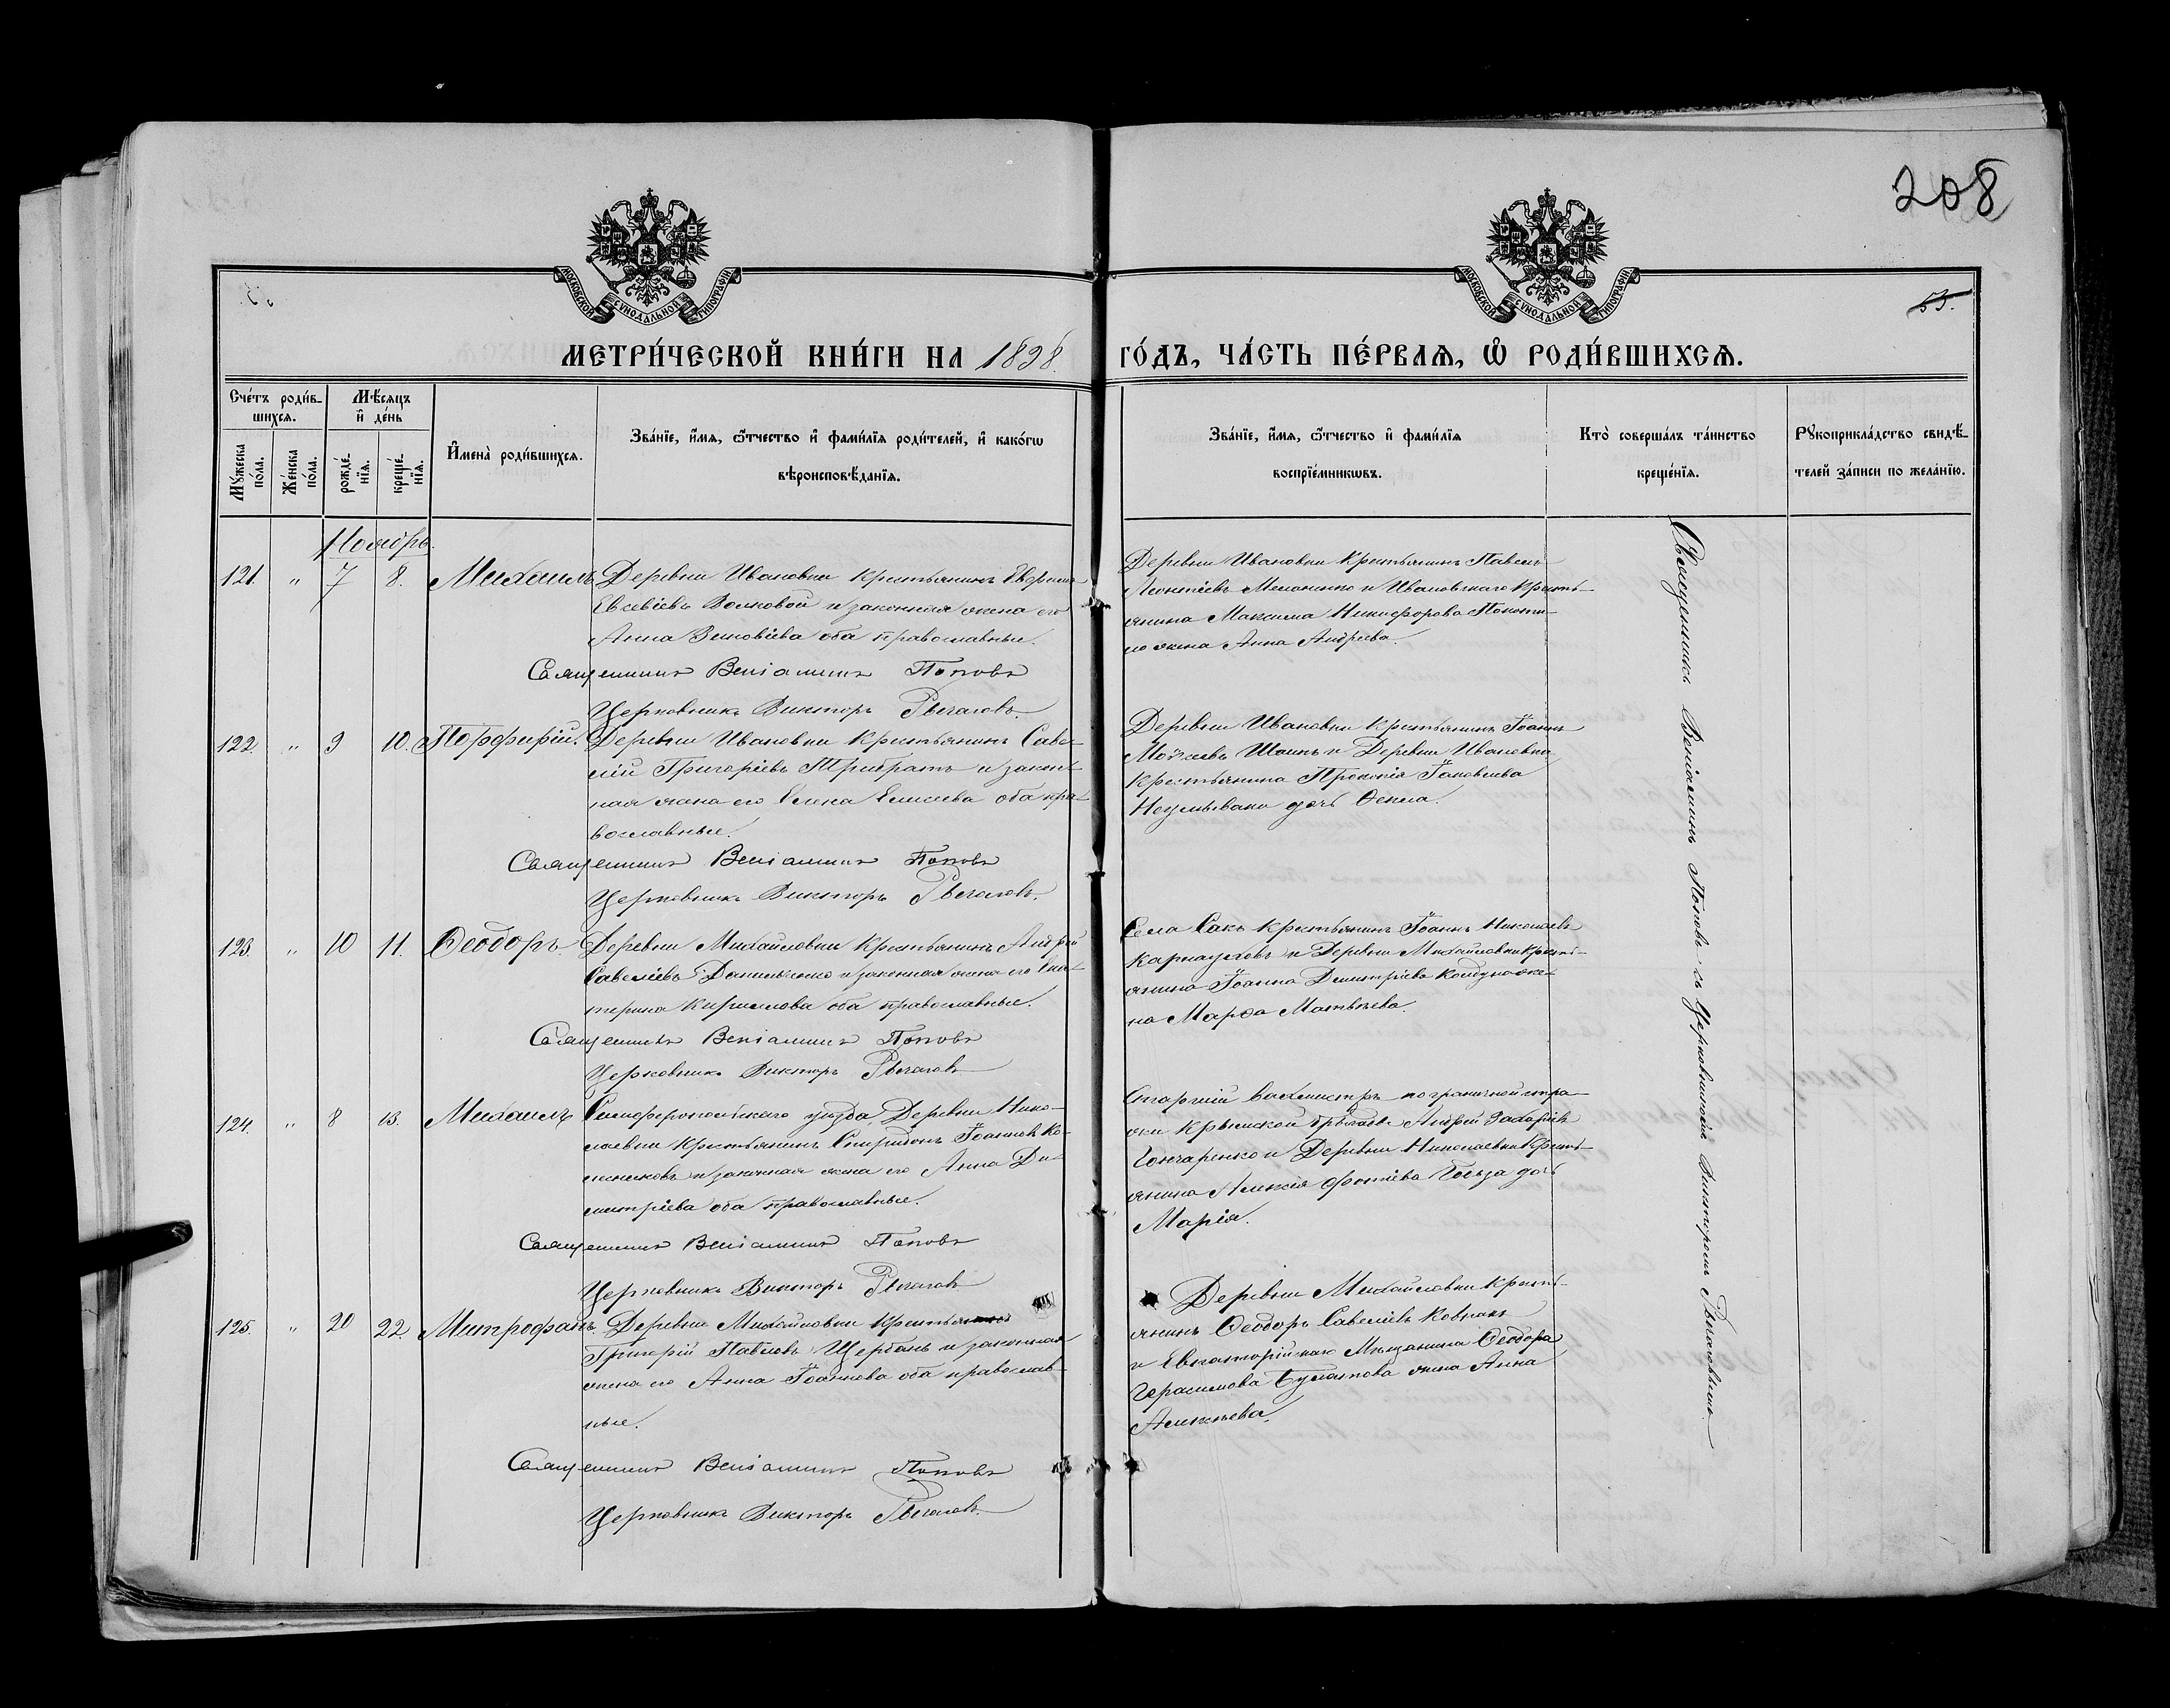 208
53.
МОСКОВСКОЙ СУНОДАЛЬНОЙ ТИПОГРАФІИ
МОСКОВСКОЙ СУНОДАЛЬНОЙ ТИПОГРАФІИ
МЕТРИ́ЧЕСКОЙ КНИ́ГИ НА 1898 ГО́ДЪ, ЧА́СТЬ ПЕ́РВАѦ, Ѡ РОДИ́ВШИХСѦ.
Сче́тъ роди́в-
шихсѧ.
Мꙋ́жеска по́ла.
Же́нска по́ла.
Мѣ́сѧцъ
и҆ де́нь
рожде́-нїѧ.
креще́-нїѧ.
И҆мена̀ роди́вшихсѧ.
Зва́нїе, и҆́мѧ, ѻ҆́тчество и҆ фами́лїѧ роди́телей, и҆ како́гѡ
вѣроисповѣ́данїѧ.
Зва́нїе, и҆́мѧ, ѻ҆́тчество и҆ фами́лїѧ
воспрїе́мникѡвъ.
Кто̀ соверша́лъ та́инство
креще́нїѧ.
Рꙋкоприкла́дство свидѣ́-
телей за́писи по жела́нїю.
Ноябрь.
121. " 7 8. Михаилъ
Деревни Ивановки крестьянинъ Евфимъ
Евсевіевъ Волковой и законная жена его
Анна Зиновіева оба православные.
Священникъ Веніаминъ Поповъ
Церковникъ Викторъ Рычаговъ.
Деревни Ивановки крестьянинъ Павелъ
Леонтіевъ и Ивановскаго кресть-
янина Максима Никифорова
жена Анна Андреева.
122. " 9 10. Порфирій.
Деревни Ивановки крестьянинъ Саве-
лій Григоріевъ Трибратъ и закон-
ная жена его Елена Елисеева оба пра-
вославные.
Священникъ Веніаминъ Поповъ
Церковникъ Викторъ Рычаговъ.
Деревни Ивановки крестьянинъ Іоаннъ
и Деревни Ивановки
крестьянина Прокопія Іаковлева
дочь Ѳекла.
123. " 10 11. Ѳеодоръ.
Деревни Михайловки крестьянинъ Андрей
Савеліевъ Данильченко и законная жена его Ека-
терина Кириллова оба православные.
Священникъ Веніаминъ Поповъ
Церковникъ Викторъ Рычаговъ
Села Сакъ крестьянинъ Іоаннъ Николаевъ
Карнауховъ и Деревни Михайловки кресть-
янина Іоанна Димитріева Колдуна же-
на Марѳа Матвѣева.
124. " 8 13. Михаилъ
Симферопольскаго уѣзда, Деревни Нико-
лаевки крестьянинъ Спиридонъ Іоанновъ
и законная жена его Анна Ди-
митріева оба православные.
Священникъ Веніаминъ Поповъ
Церковникъ Викторъ Рычаговъ
Старшій вахмистръ пограничной стра-
жи Крымской бригады Андрей Захаріевъ
Гончаренко и Деревни Николаевки кресть-
янина Алексія Фотіева дочь
Марія.
125. " 20 22 Митрофанъ
Деревни Михайловки крестьянинъ
Григорій Павловъ Щербань и законная
жена его Анна Іоаннова оба православ-
ные.
Священникъ Веніаминъ Поповъ
Церковникъ Викторъ Рычаговъ.
Деревни Михайловки кресть-
янинъ Ѳеодоръ Савеліевъ Ковракъ
и Евпаторійскаго Мѣщанина Ѳеодора
Герасимова Булатова жена Анна
Алексѣева.
Священникъ Веніаминъ Поповъ съ Церковникомъ Викторомъ Рычаговымъ.